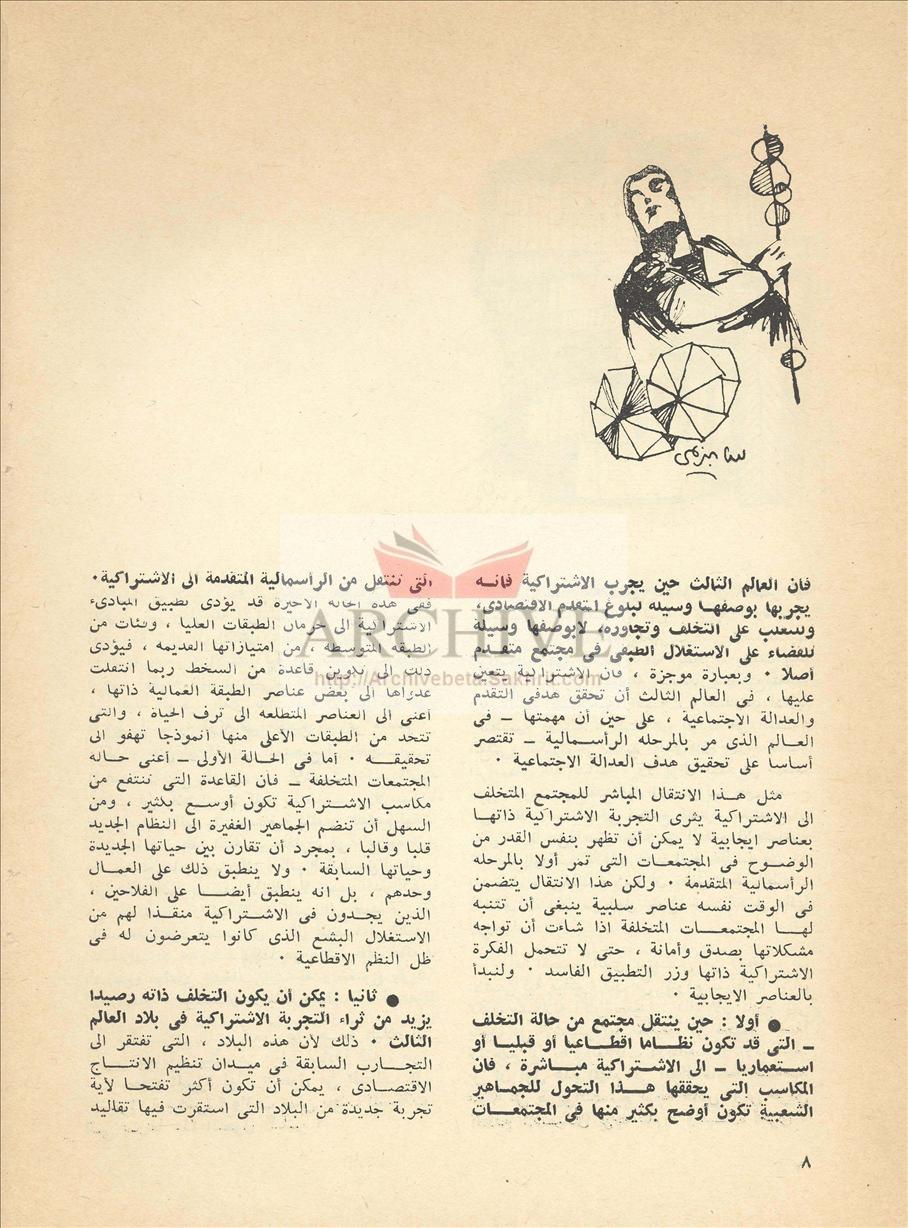 فان العالم الثالث حين يجرب الاشتراكية فانـه
يجربها بوصفهـا وسيلة لبلوغ التقدم الاقتصادى،
وللتغلب على التخلف وتجاوزه، لابوصفها وسيلة
للقضاء على الاستغلال الطبقى فى مجتمع متقـدم
أصلا · وبعبارة موجزة ، فان الاشتراكية يتعين
عليها ، فى العالم الثالث أن تحقق هدفى التقدم
والعدالة الاجتماعية ، على حين أن مهمتها ــ فى
العـالم الذى مر بالمرحلة الرأسـمالية ــ تقتصر
أساسا على تحقيق هدف العدالة الاجتماعية ·
مثل هـذا الانتقال المباشر للمجتمع المتخلف
الى الاشتراكية يثرى التجربة الاشتراكية ذاتهـا
بعناصر ايجابية لا يمكن أن تظهر بنفس القدر من
الوضـوح فى المجتمعـات التى تمر أولا بالمرحلة
الرأسمالية المتقدمة · ولكن هذا الانتقال يتضمن
فى الوقت نفسه عناصر سلبية ينبغى أن تتنبه
لهـا المجتمعـات المتخلفة اذا شاءت أن تواجه
مشكلاتها بصدق وأمانة ، حتى لا تتحمل الفكرة
الاشتراكية ذاتها وزر التطبيق الفاسد · ولنبدأ
بالعناصر الايجابية ·
● أولا : حين ينتقل مجتمع من حالة التخلف
ــ التى قد تكون نظـاما اقطـاعيا أو قبليـا أو
اسـتعماريا ــ الى الاشتراكية مبـاشرة ، فان
المكاسب التى يحققها هـذا التحول للجمـاهير
الشعبية تكون أوضح بكثير منها فى المجتمعـات
التى تنتقل من الرأسمالية المتقدمة الى الاشتراكية·
ففى هذه الحالة الأخيرة قد يؤدى تطبيق المبادىء
الاشتراكية الى حرمان الطبقات العليا ، وفئات من
الطبقة المتوسطة ، من امتيازاتها القديمة ، فيؤدى
ذلك الى تكوين قاعدة من السخط ربما انتقلت
عدواها الى بعض عناصر الطبقة العمالية ذاتها ،
أعنى الى العناصر المتطلعة الى ترف الحياة ، والتى
تتخذ من الطبقات الأعلى منها أنموذجا تهفو الى
تحقيقـه · أما فى الحـالة الأولى ــ أعنى حـالة
المجتمعات المتخلفة ــ فان القاعدة التى تنتفع من
مكاسب الاشـتراكية تكون أوسـع بكثير ، ومن
السهل أن تنضم الجماهير الغفيرة الى النظام الجديد
قلبا وقالبا ، بمجرد أن تقارن بين حياتها الجديدة
وحياتها السابقة · ولا ينطبق ذلك على العمـال
وحدهم ، بل انه ينطبق أيضـا على الفلاحين ،
الذين يجـدون فى الاشـتراكية منقـذا لهم من
الاستغلال البشع الذى كانوا يتعرضون له فى
ظل النظم الاقطاعية ·
● ثانيا : يمكن أن يكون التخلف ذاته رصيدا
يزيد من ثراء التجربة الاشتراكية فى بلاد العالم
الثالث · ذلك لأن هذه البلاد ، التى تفتقر الى
التجـارب السابقة فى ميـدان تنظيم الانتـاج
الاقتصـادى ، يمكن أن تكون أكثر تفتحـا لأية
تجربة جديدة من البلاد التى استقرت فيها تقاليد
٨
ARCHIVE
http://Archivebeta.Sakhrit.com